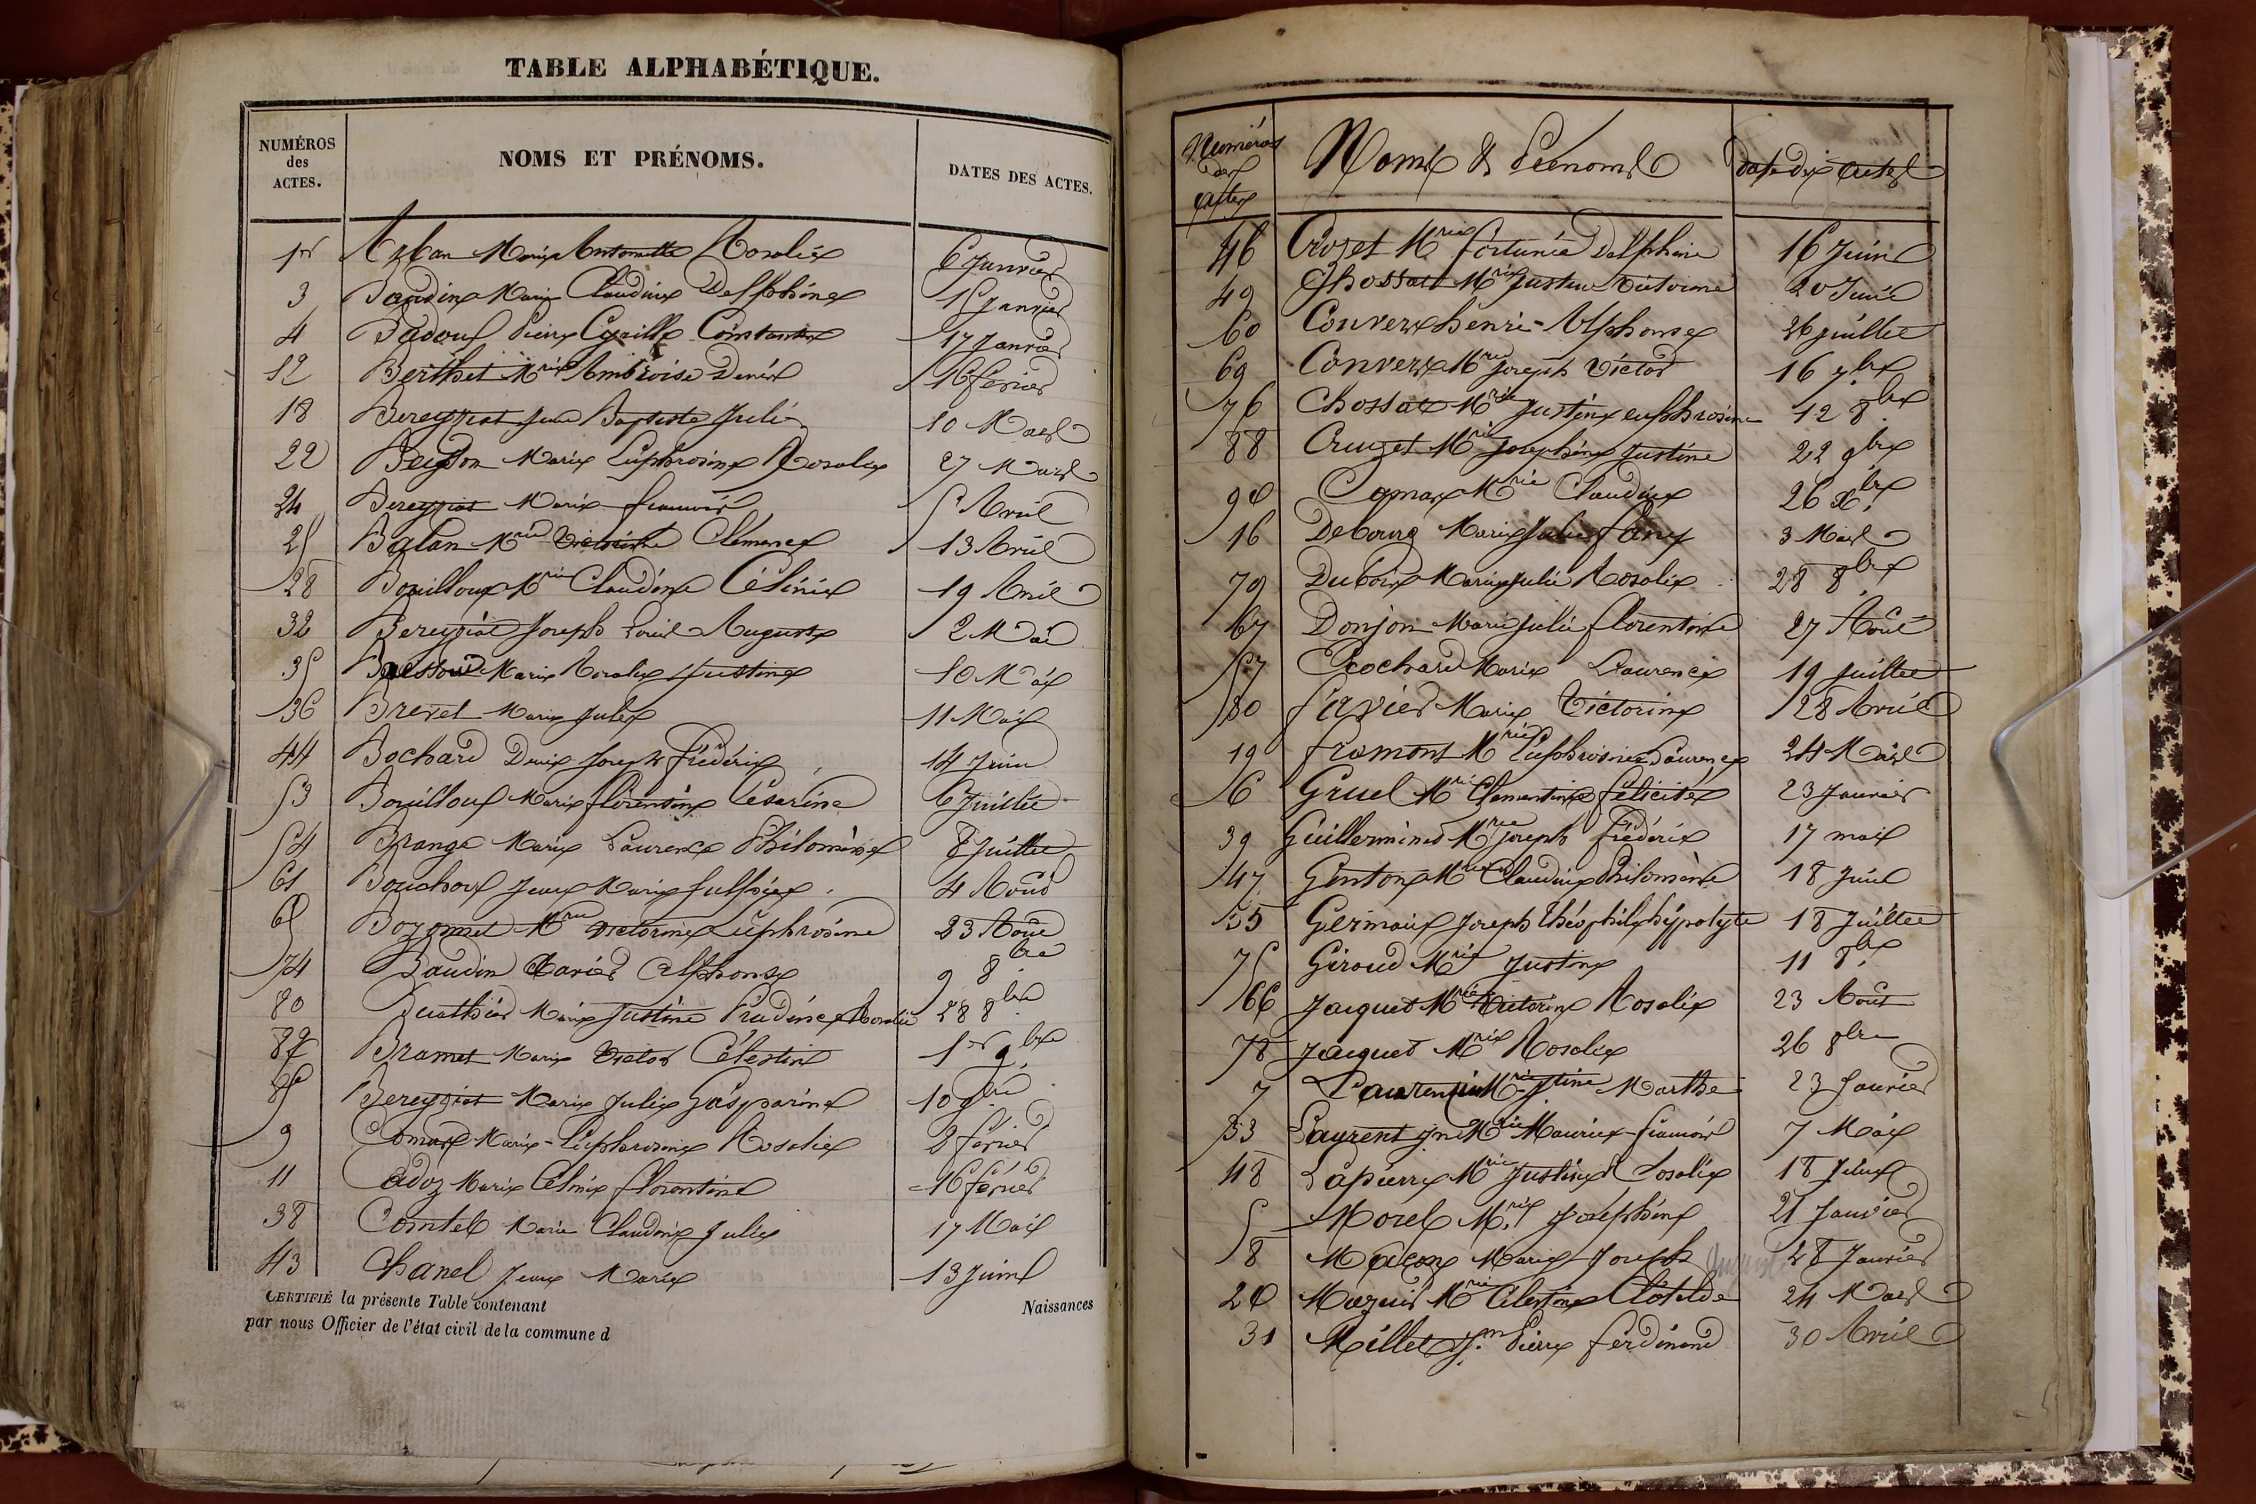 TABLE ALPHABÉTIQUE.
NUMÉROS des ACTES. NOMS ET PRÉNOMS. DATES DES ACTES.
1er Marie Antoinette Rosalie 6 Janvier
3 Baudin Marie Claudine Delphine 16 Janvier
4 Badoux Pierre Camille Constantin 17 Janvier
12 Berthet Mrie Ambroise Denis 16 fevrier
18 Bereyziat Jean Baptiste Juli 10 Mars
22 Marie Euphrosine Rosalie 27 Mars
24 Bereyziat Marie francois 5 Avril
25 Balan Mrie Victorine Clémence 13 Avril
28 Bouilloux Mrie Claudine Célinie 19 Avril
32 Bereyziat Joseph Louis Auguste 2 Mai
35 Marie Rosalie Justine 10 Mai
36 Brevet Marie Jules 11 Mai
44 Bochard Denis Joseph frédéric 14 Juin
53 Bouilloux Marie florentine Césarine 6 Juillet
54 Brange Marie Laurence Philomène 8 Juillet
61 Bouchoux Jean Marie Sulpice 4 Août
65 Bozonnet Mrie Victorine Euphrosine 23 Août
74 Baudin Xavier Alphonse 9 8bre
80 Buathier Marie Justine Prudence Rosalie 28 8bre
82 Bramet Marie Victor Célestin 1er 9bre
85 Bereyziat Marie Julie Gasparine 10 9bre
9 Comas Marie-Euphrosine Rosalie 8 fevrier
11 Cadoz Marie Célinie florentine 16 fevrier
38 Comtet Marie Claudine Julie 17 Mai
43 Chanel Jean Marie 13 Juin
CERTIFIÉ la présente Table contenant Naissances
par nous Officier de l'état civil de la commune d
Numéros des actes Noms & Prénoms date des actes
46 Crozet Mrie fortunée Delphine 16 Juin
49 Chossat Mrie Justine Victorine 20 Juin
60 Convers henri-Alphonse 26 juillet
69 Convers Mrie Joseph Victor 16 7bre
76 Chossat Mrie Justine euphrosine 12 8bre
88 Cruzet Mrie Joséphine Justine 22 9bre
90 Comas Mrie Claudine 26 Xbre
16 Debourg Marie Julie fany 3 Mars
79 Dubois Marie Julie Rosalie 28 8bre
67 Donjon Marie Julie florentine 27 Août
57 Ecochard Marie Laurence 19 Juillet
30 favier Marie Victorine 28 Avril
19 fromont Mrie Euphrosine Laurence 24 Mars
6 Gruel Mrie Clementine félicité 23 Janvier
39 Guillerminet Mrie Joseph Frédéric 17 mai
47 Genton Mrie Claudine Philomène 18 Juin
55 Germain Joseph théophile hypolyte 18 Juillet
75 Giroud Mrie Justine 11 8bre
66 Jacquet Mrie Victorine Rosalie 23 Août
78 Jacquet Mrie Rosalie 26 8bre
7 Laurencin Mrie Jtine Marthe 23 Janvier
33 Laurent Jn Mrie Maurice francois 7 Mai
48 Lapierre Mrie Justine Rosalie 18 Juin
5 Morel Mrie Joséphine 21 Janvier
8 Macon Marie Joseph 28 Janvier
20 Mazuir Mrie Celestine Clotilde 24 Mars
31 Millet Jn. Pierre ferdinand 30 Avril